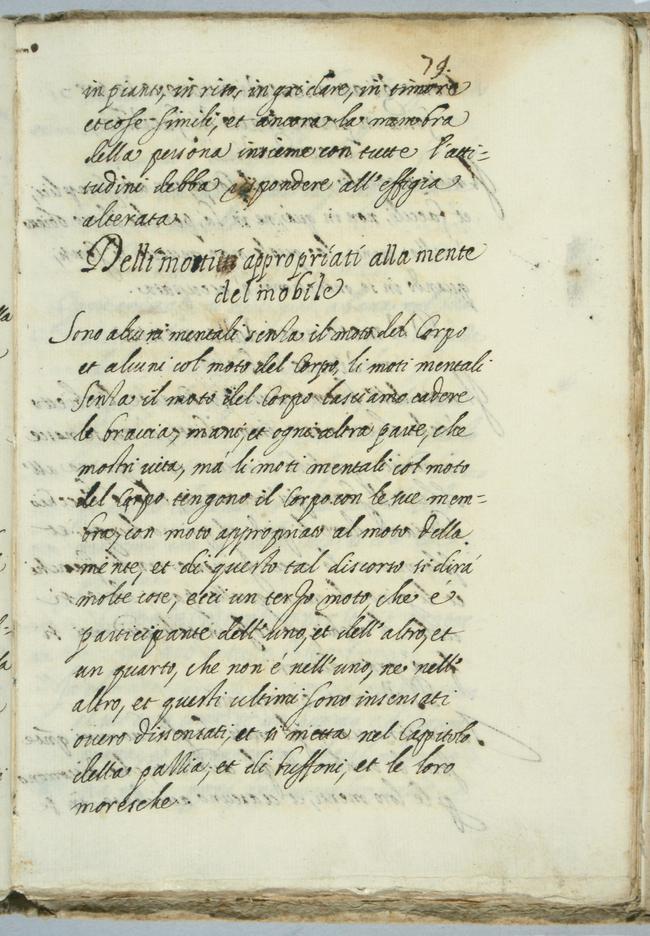 79.
in pianto, in riso, in gridare, in timore
et cose simili, et ancora la membra
della persona insieme con tutte l'atti=
tudini debba rispondere all'effigia
alterata
Delli motti appropriati alla mente
del mobile
Sono alcuni mentali senza il moto del Corpo
et alcuni col moto del Corpo, li moti mentali
senza il moto del Corpo lasciamo cadere
le braccia, mani et ogni altra parte, che
mostri vita, má li moti mentali col moto
del Corpo tengono il Corpo con le sue mem=
bra, con moto appropriato al moto della
mente, et di questo tal discorso si dirá
molte cose, ecci un terzo moto, che é
participante dell'uno, et dell'altro, et
un quarto, che non é nell'uno, ne nell'
altro, et questi ultimi sono insensati
overo dissensati, et si metta nel Cappitolo
della pazzia, et di buffoni, et le loro
moresche